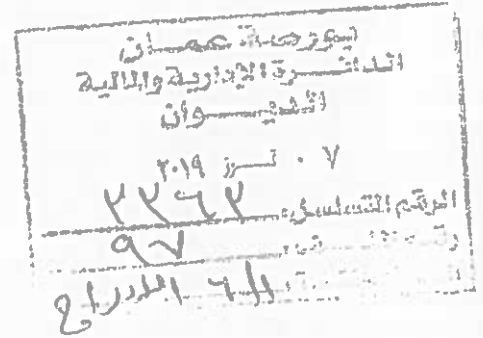 بورصة عمان
الدائرة الإدارية والمالية
الديوان
٠٧ تموز ٢٠١٩
الرقم المتسلسل ٢٢٦٢
٩٧
الإدراج